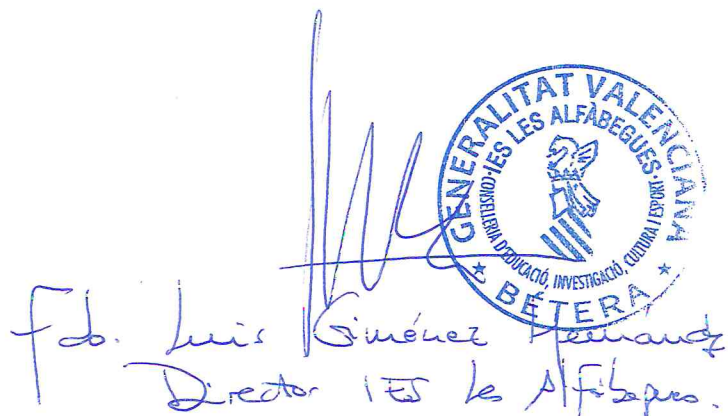 GENERALITAT VALENCIANA
IES LES ALFÀBEGUES
CONSELLERIA D'EDUCACIÓ, INVESTIGACIÓ, CULTURA I ESPORT
★ BÉTERA ★
Fdo. Luis Giménez Hernández
Director IES Les Alfàbegues.